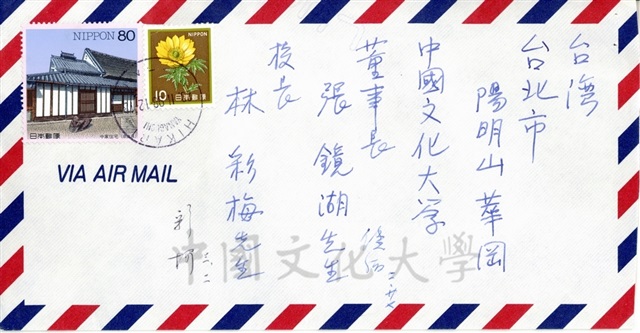 台湾
台北市
陽明山華岡
中國文化大学
董事長
張鏡湖先生
校長
林彩梅先生
NIPPON 80
日本郵便
NIPPON
10
日本郵便
VIA AIR MAIL
中國文化大學